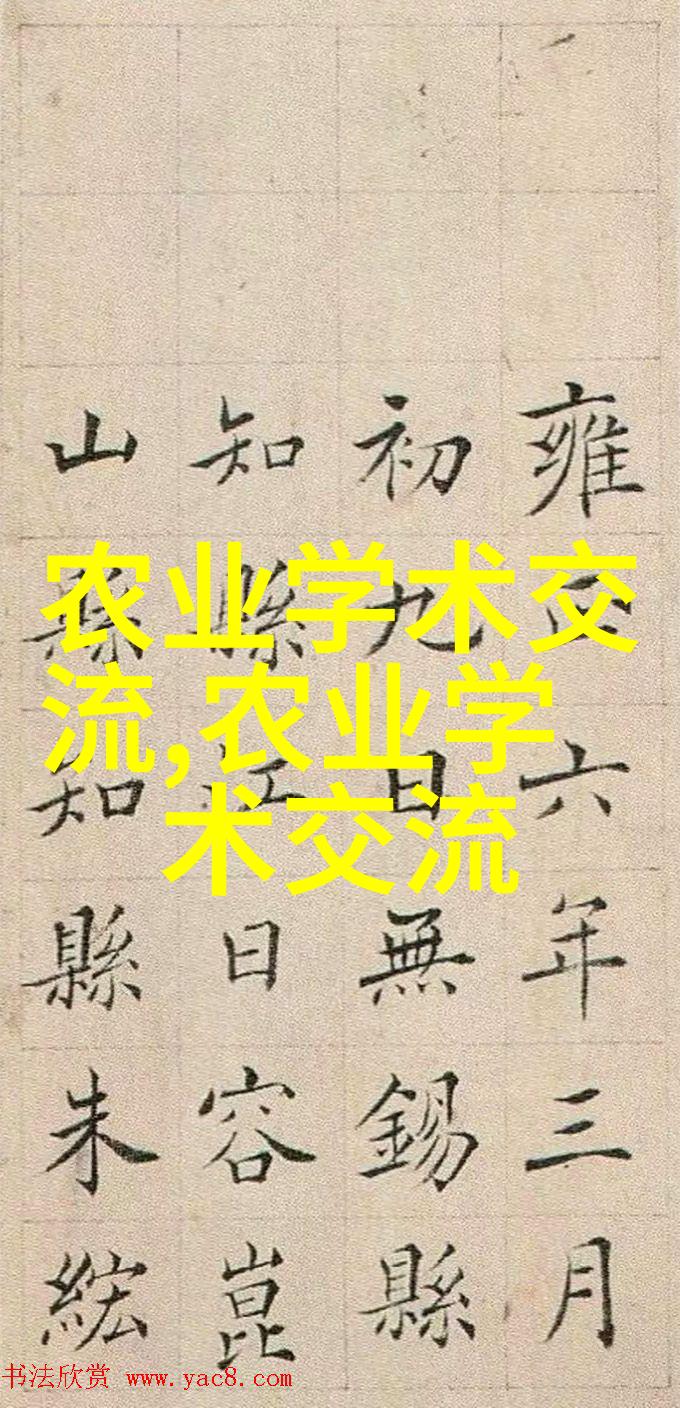 雍正六年三月
初九日無錫縣
知縣江日容崑
山縣知縣朱綋
农业学术交
流,农业学
术交流
书法欣赏 www.yac8.com